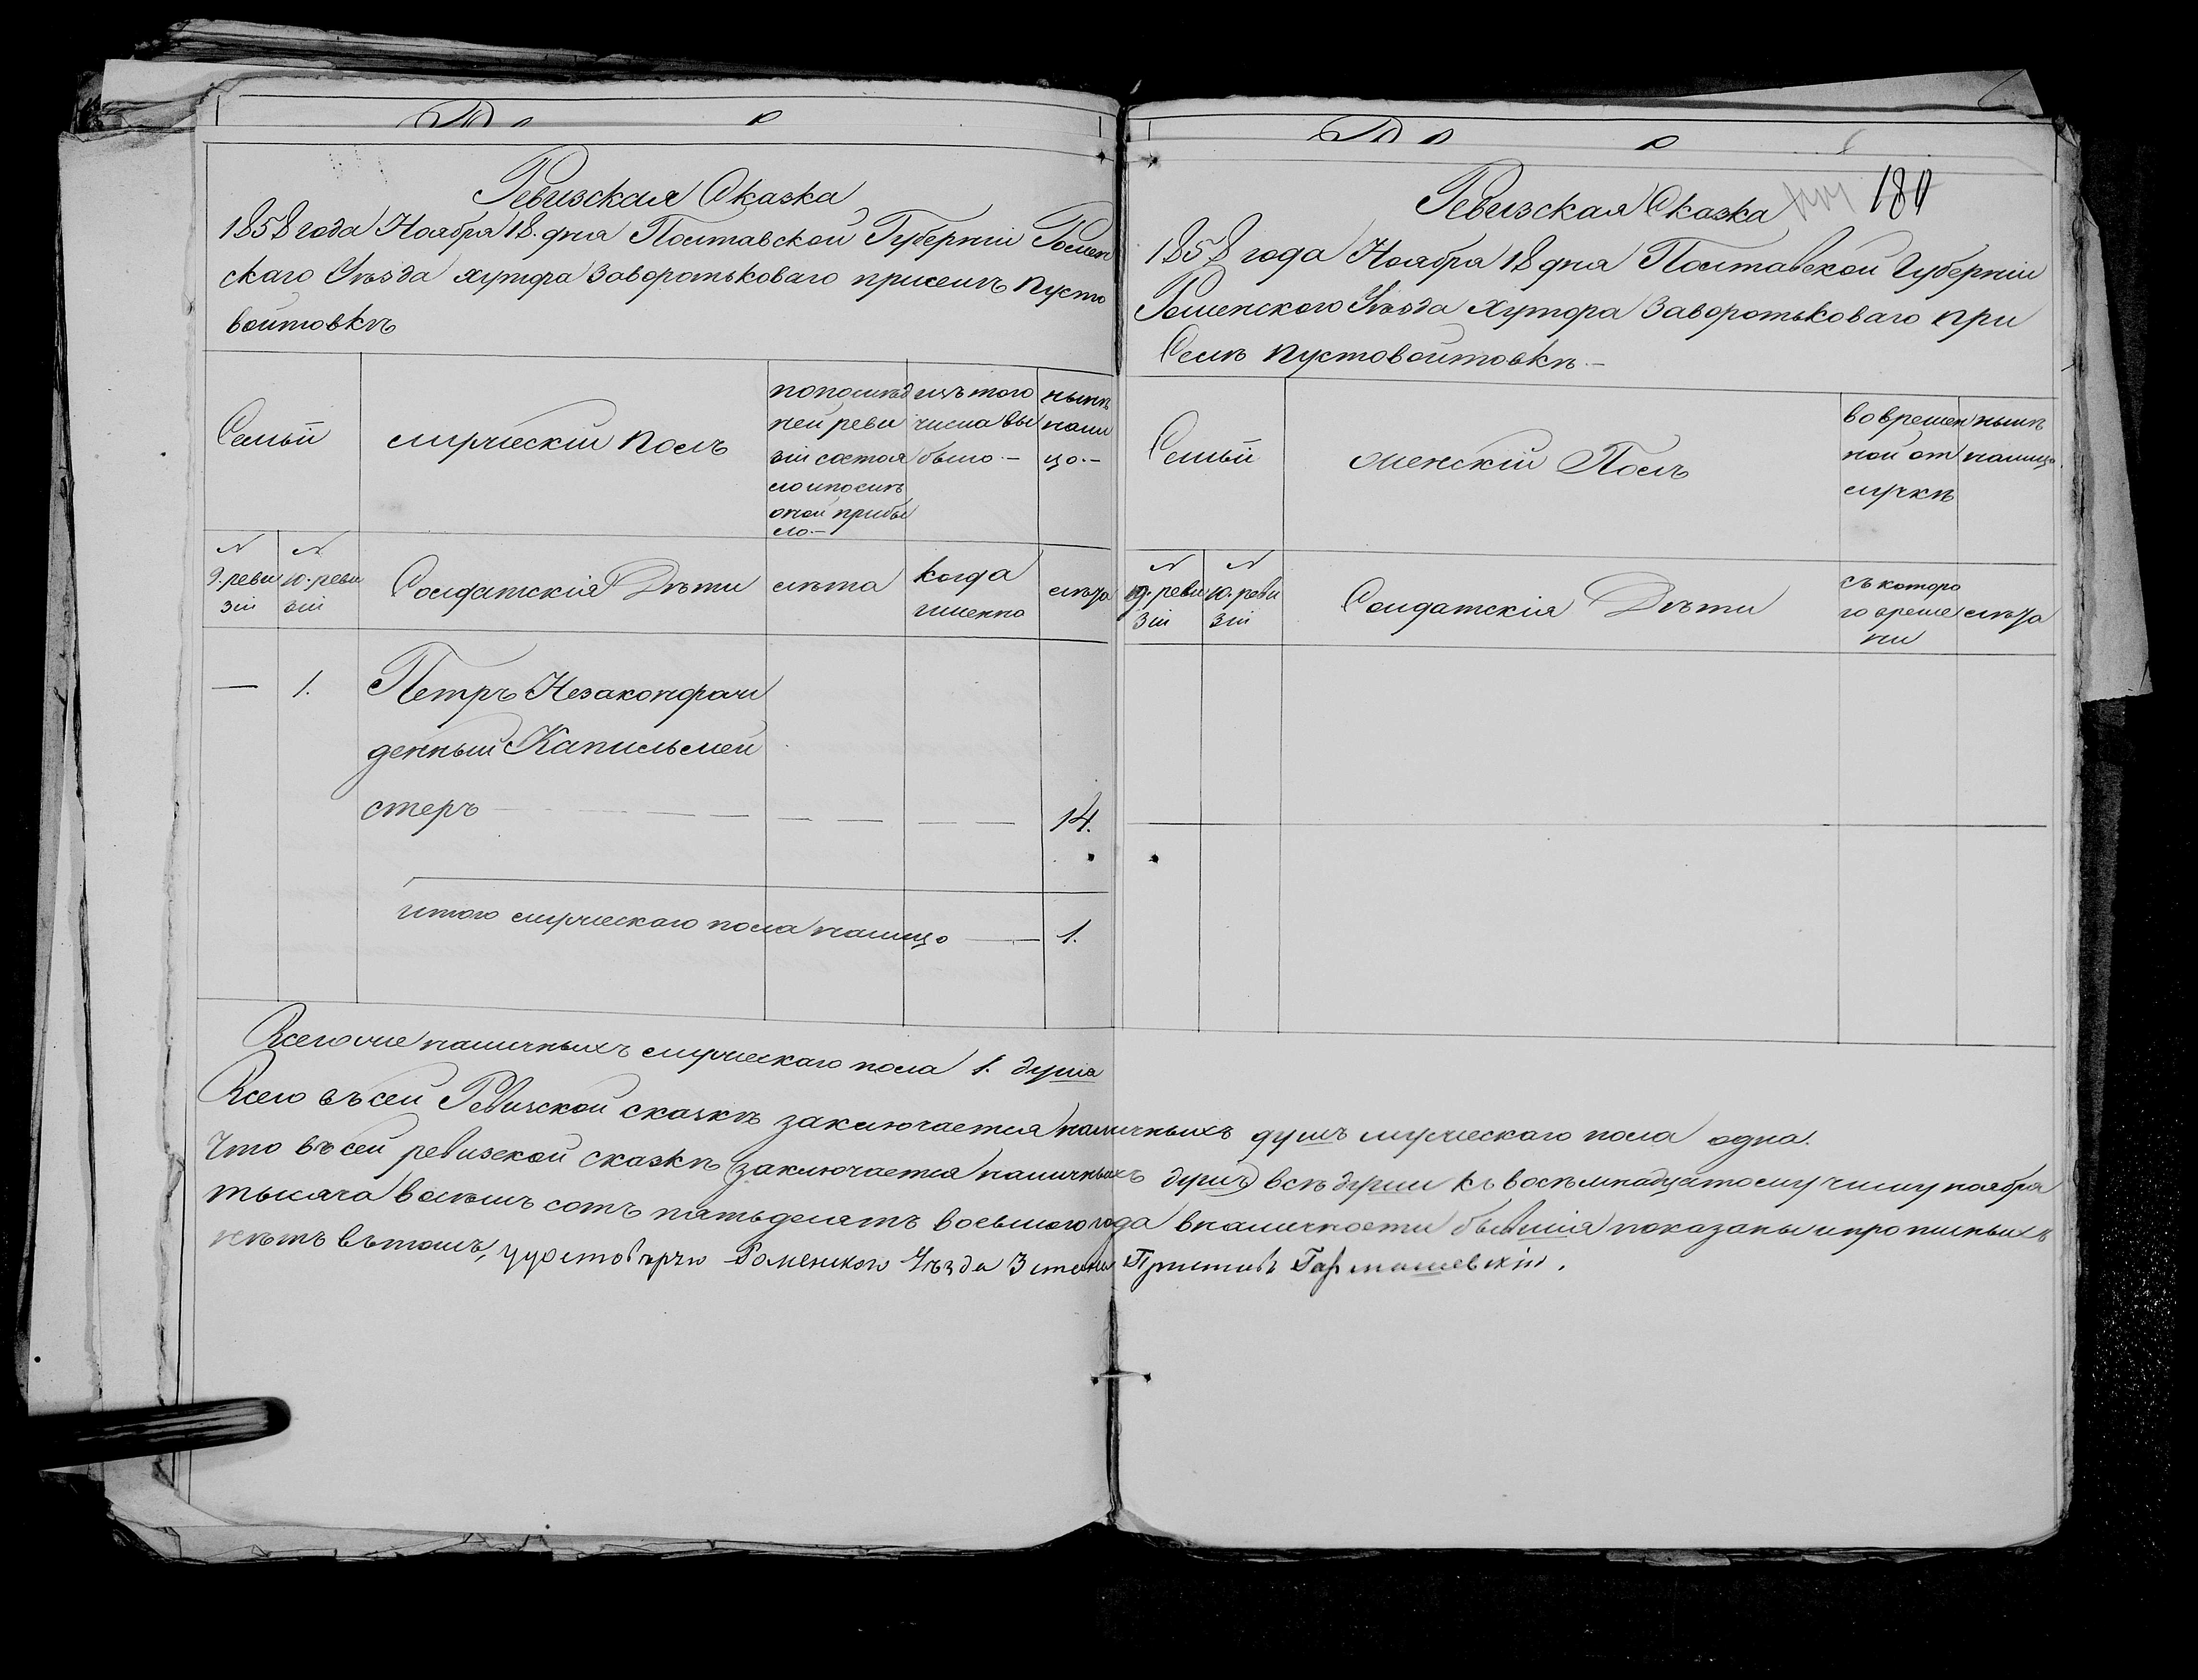 Ревизская Сказка
1858 года Ноября 18. дня Полтавской Губерніи Ромен
скаго Уѣзда хутора Заворотьковаго приселѣ Пусто
войтовкѣ
Семьи
мужескій полъ
попослѣд
ней реви
зіи состоя
ло ипослѣ
оной прибы
ло.—
изъ того
числа вы
было.—
нынѣ
нали
цо.—
№
9. реви
зіи
№
10. реви
зіи
Солдатскія Дѣти
лѣта
когда
именно
лѣта
— 1. Петръ Незаконорожи
денный Капильмей
стеръ — — — — 14.
итого мужескаго пола налицо — 1.
Ревизская Сказка
180
1858 года Ноября 18 дня Полтавской Губерніи
Роменского Уѣзда Хутора Заворотьковаго при
Селѣ Пустовойтовкѣ.—
Семьи
женскій Полъ
во времен
ной от
лучкѣ
нынѣ
налицо.
№
9. реви
зіи
№
10. реви
зіи
Солдатскія Дѣти
съ которо
го време
ни
лѣта
Всего же наличныхъ мужескаго пола 1. душа
Всего въ сей Ревизской сказкѣ заключается наличныхъ душъ мужескаго пола одна.
Что въ сей ревизской сказкѣ (заключается наличныхъ душъ) всѣ души къ восѣмнадцатому числу ноября
тысяча восѣмь сотъ пятьдесятъ восьмого года вналичности бывшія показаны ипрописныхъ
нѣтъ вътомъ, удостовѣряю Роменскаго Уѣзда 3 стана Приставъ Гармашевскій.